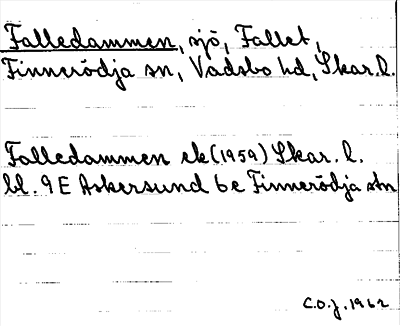 Falledammen, sjö, Fallet,
Finnerödja sn, Vadsbo hd, Skar. l.
Falledammen ek (1959) Skar. l.
bl. 9 E Askersund 6 e Finnerödja stn
C.O.J. 1962